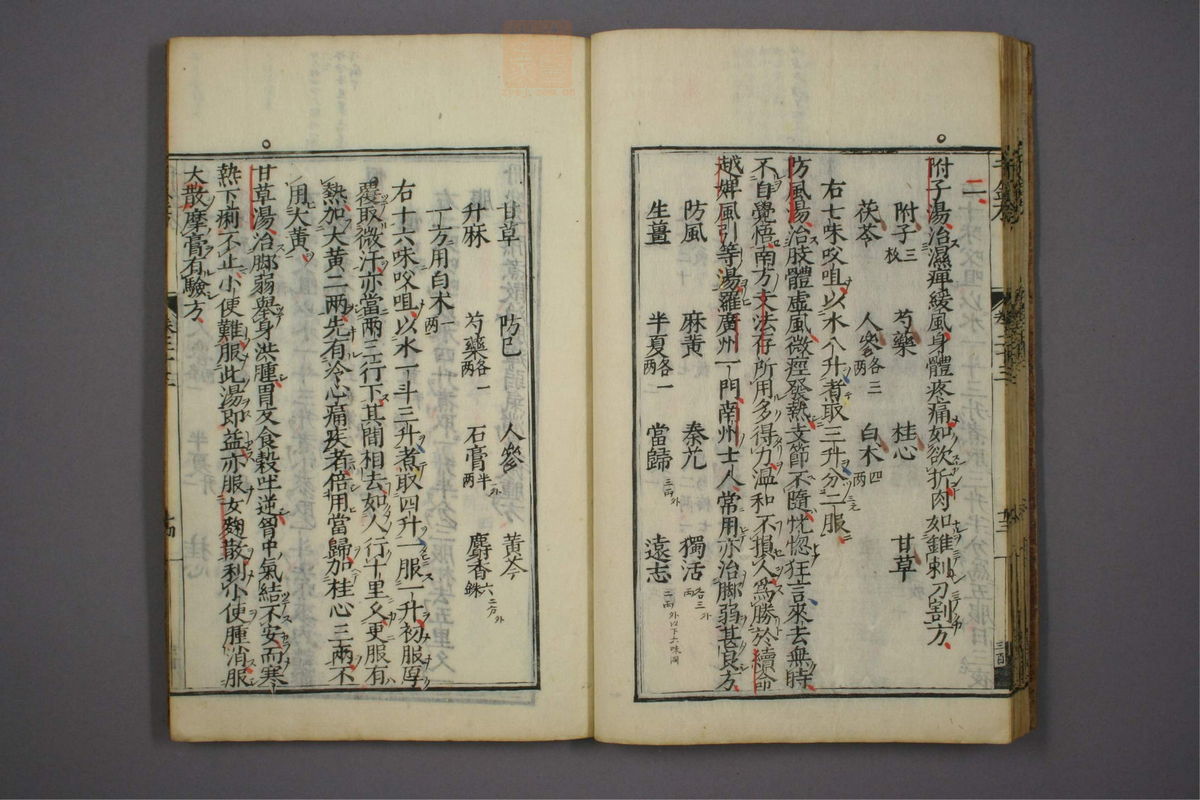 附子湯治濕痺緩風身體疼痛如欲折肉如錐刺刀割方
附子三枚 芍藥 桂心 甘草
茯苓 人參各三两 白朮四两
右七味㕮咀以水八升煮取三升分二服
防風湯治肢體虛風微痙發熱支節不隨恍惚狂言來去無時
不自覺悟南方支法存所用多得力温和不損人爲勝於續命
越婢風引等湯羅廣州一門南州士人常用亦治脚弱甚良方
防風 麻黄 秦艽 獨活各三两
生薑 半夏各一两 當歸 遠志
甘草 防已 人參 黄芩
升麻 芍藥各一两 石膏半两 麝香六銖
一方用白朮一两
右十六味㕮咀以水一斗三升煮取四升一服一升初服厚
覆取微汗亦當兩三行下其間相去如人行十里久更服有
熱加大黄二兩先有冷心痛疾者倍用當歸加桂心三兩不
用大黄
甘草湯治脚弱舉身洪腫胃反食穀吐逆胷中氣結不安而寒
熱下痢不止小便難服此湯即益亦服女麴散利小便腫消服
大散摩膏有驗方